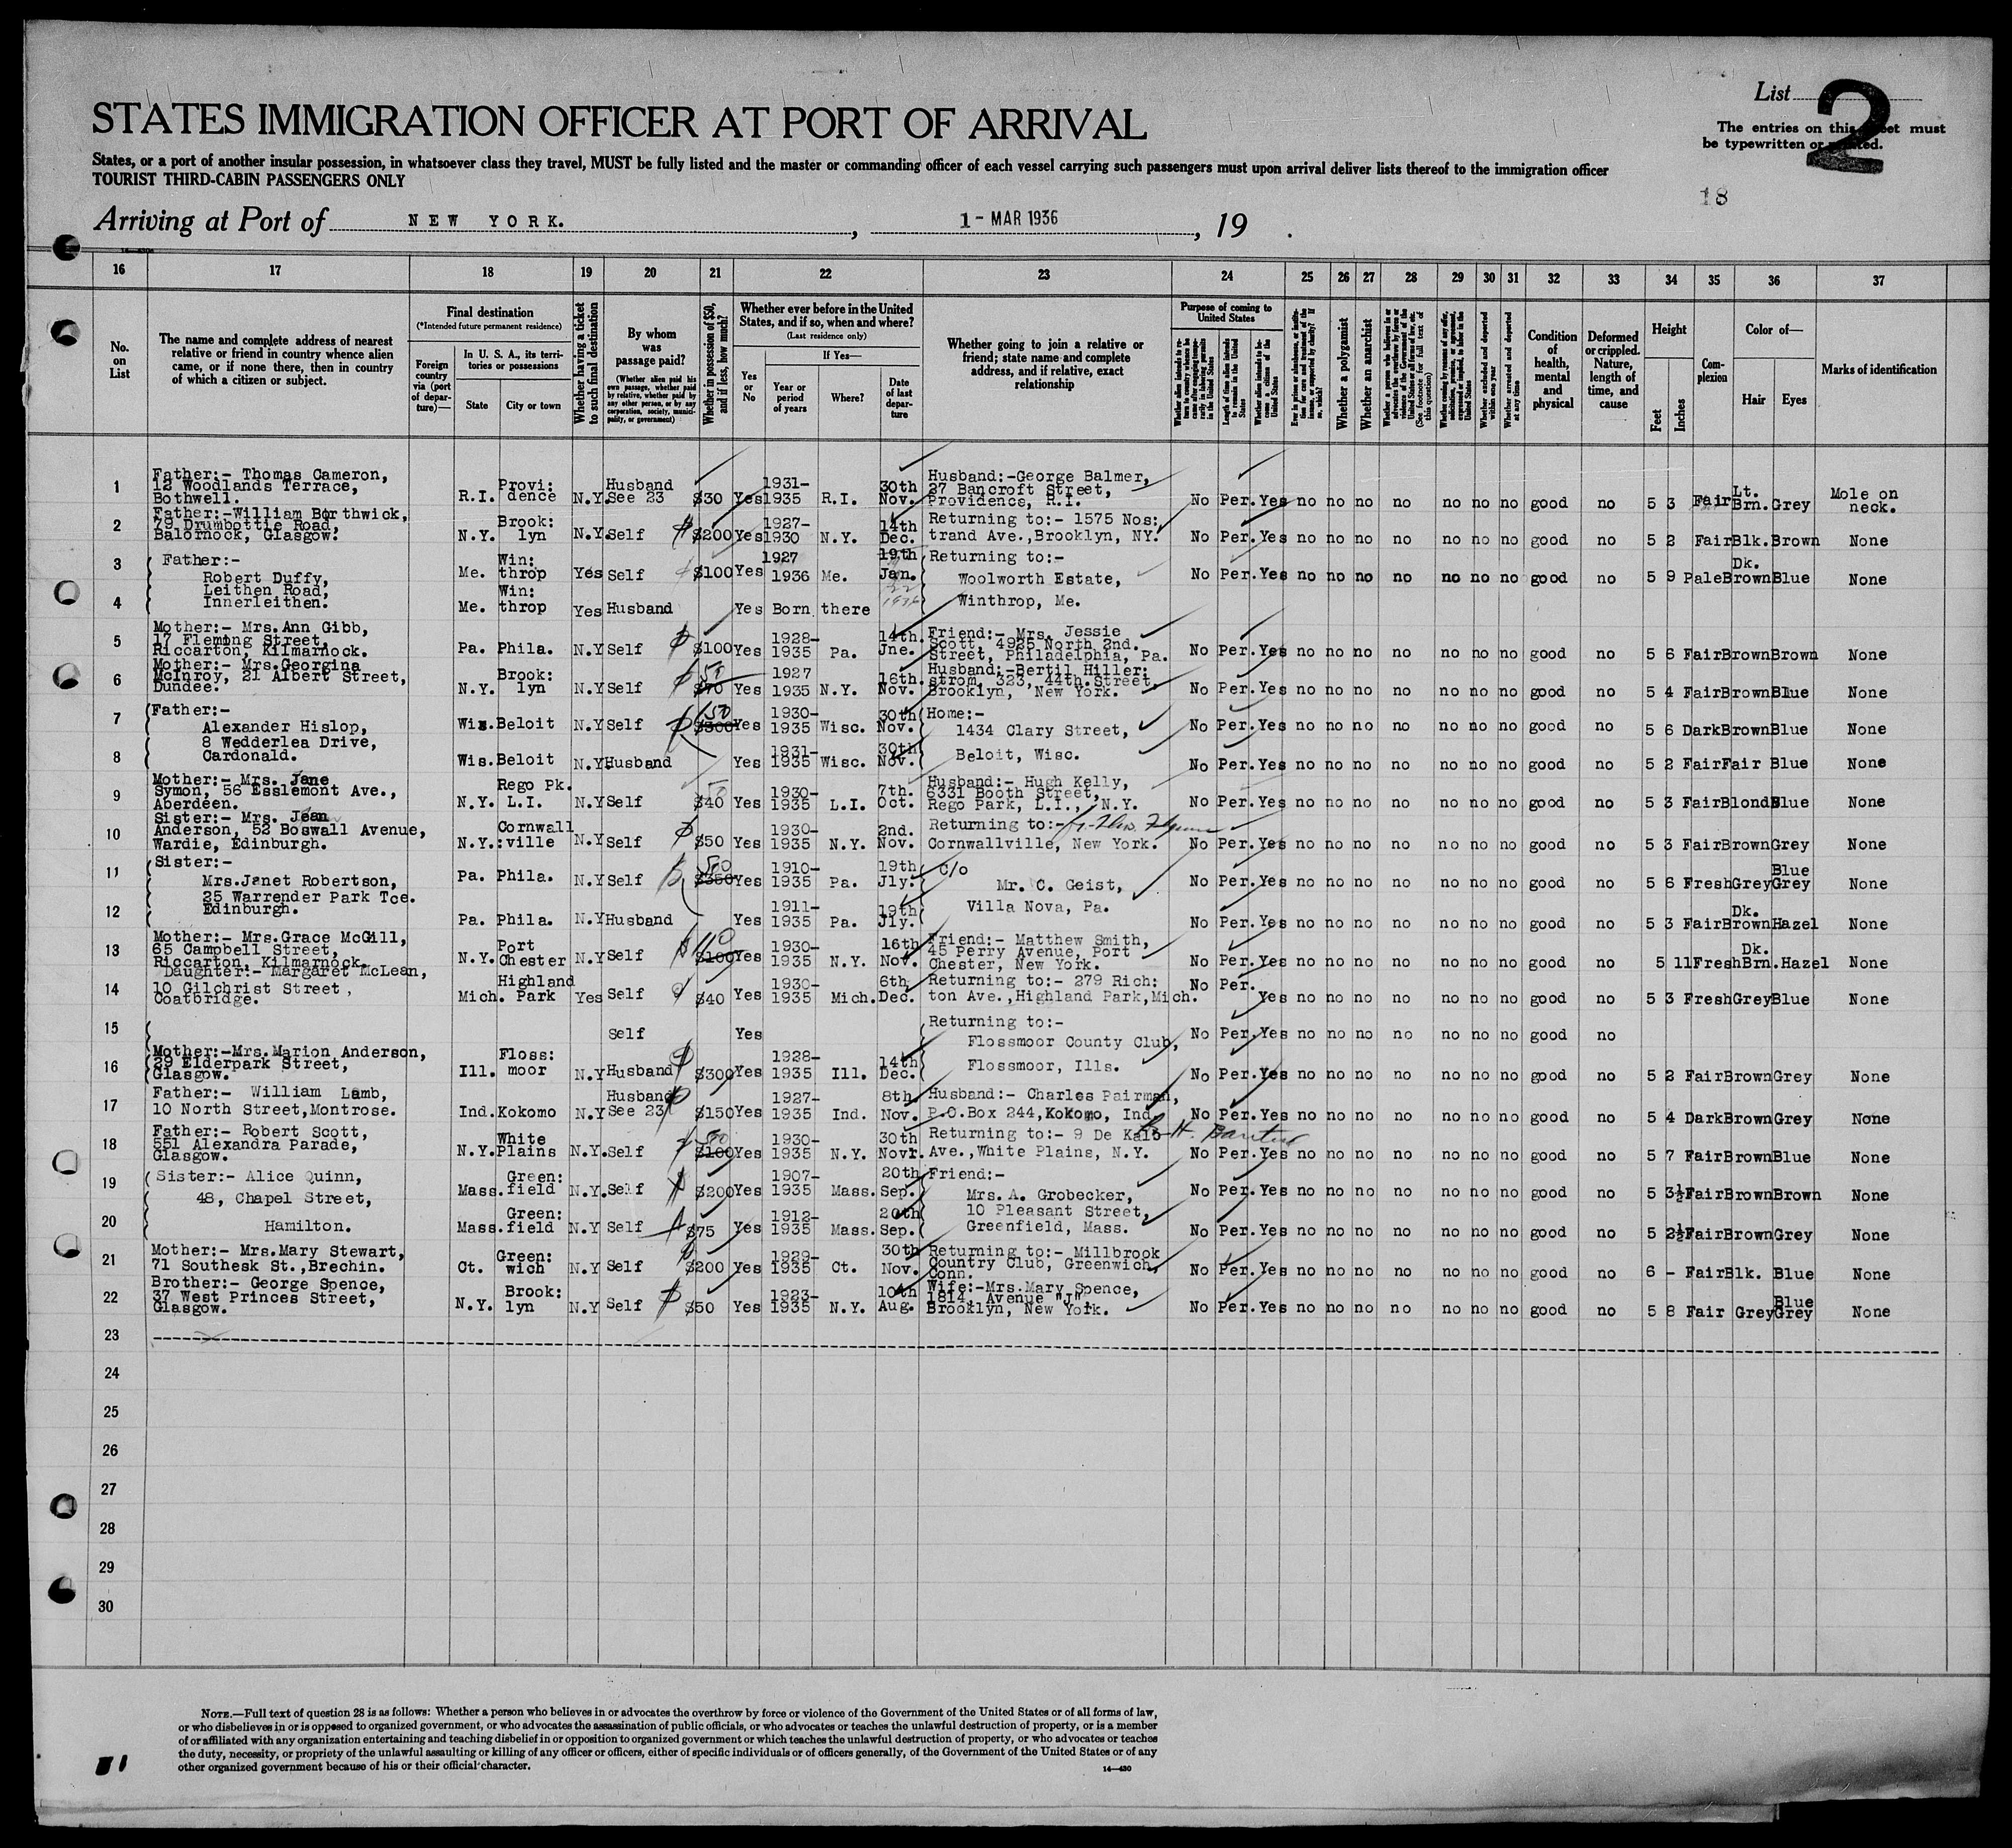 List 2
STATES IMMIGRATION OFFICER AT PORT OF ARRIVAL
The entries on this sheet must
be typewritten or printed.
States, or a port of another insular possession, in whatsoever class they travel, MUST be fully listed and the master or commanding officer of each vessel carrying such passengers must upon arrival deliver lists thereof to the immigration officer
TOURIST THIRD-CABIN PASSENGERS ONLY
18
Arriving at Port of NEW YORK. , 1- MAR 1936 , 19 .
16 17 18 19 20 21 22 23 24 25 26 27 28 29 30 31 32 33 34 35 36 37
No. on List
The name and complete address of nearest relative or friend in country whence alien came, or if none there, then in country of which a citizen or subject.
Final destination
(*Intended future permanent residence)
Foreign country via (port of departure)—
In U. S. A., its territories or possessions
State
City or town
Whether having a ticket to such final destination
By whom was passage paid?
(Whether alien paid his own passage, whether paid by relative, whether paid by any other person, or by any corporation, society, municipality, or government)
Whether in possession of $50, and if less, how much?
Whether ever before in the United States, and if so, when and where?
(Last residence only)
Yes or No
If Yes—
Year or period of years
Where?
Date of last departure
Whether going to join a relative or friend; state name and complete address, and if relative, exact relationship
Purpose of coming to United States
Whether a polygamist
Whether an anarchist
Whether excluded and deported within one year
Whether arrested and deported at any time
Condition of health, mental and physical
Deformed or crippled. Nature, length of time, and cause
Height
Feet
Inches
Complexion
Color of—
Hair
Eyes
Marks of identification
1 Father:- Thomas Cameron, 12 Woodlands Terrace, Bothwell. R.I. Provi: dence N.Y. Husband See 23 $30 Yes 1931- 1935 R.I. 30th Nov. Husband:-George Balmer, 27 Bancroft Street, Providence, R.I. No Per. Yes no no no no no no no good no 5 3 Fair Lt. Brn. Grey Mole on neck.
2 Father:-William Borthwick, 79 Drumbottie Road, Balornock, Glasgow. N.Y. Brook: lyn N.Y. Self $200 Yes 1927- 1930 N.Y. 14th Dec. Returning to:- 1575 Nos: trand Ave.,Brooklyn, NY. No Per. Yes no no no no no no no good no 5 2 Fair Blk. Brown None
3 Father:- Robert Duffy, Leithen Road, Innerleithen. Me. Win: throp Yes Self $100 Yes 1927 1936 Me. 19th Jan. Returning to:- Woolworth Estate, Winthrop, Me. No Per. Yes no no no no no no no good no 5 9 Pale Dk. Brown Blue None
4 Me. Win: throp Yes Husband Yes Born there
5 Mother:- Mrs. Ann Gibb, 17 Fleming Street, Riccarton, Kilmarnock. Pa. Phila. N.Y Self $100 Yes 1928- 1935 Pa. 14th. Jne. Friend:- Mrs. Jessie Scott, 4925 North 2nd. Street, Philadelphia, Pa. No Per. Yes no no no no no no no good no 5 6 Fair Brown Brown None
6 Mother:- Mrs.Georgina McInroy, 21 Albert Street, Dundee. N.Y. Brook: lyn N.Y Self 50 $70 Yes 1927 1935 N.Y. 16th. Nov. Husband:-Bertil Hiller: strom, 323, 44th.Street, Brooklyn, New York. No Per. Yes no no no no no no no good no 5 4 Fair Brown Blue None
7 Father:- Alexander Hislop, 8 Wedderlea Drive, Cardonald. Wis. Beloit N.Y Self 150 $300 Yes 1930- 1935 Wisc. 30th Nov. Home:- 1434 Clary Street, Beloit, Wisc. No Per. Yes no no no no no no no good no 5 6 Dark Brown Blue None
8 Wis. Beloit N.Y. Husband Yes 1931- 1935 Wisc. 30th Nov. No Per. Yes no no no no no no no good no 5 2 Fair Fair Blue None
9 Mother:- Mrs. Jane Symon, 56 Esslemont Ave., Aberdeen. N.Y. Rego Pk. L.I. N.Y Self 50 $40 Yes 1930- 1935 L.I. 7th. Oct. Husband:- Hugh Kelly, 6331 Booth Street, Rego Park, L.I., N.Y. No Per. Yes no no no no no no no good no 5 3 Fair Blond Blue None
10 Sister:- Mrs. Jean Anderson, 52 Boswall Avenue, Wardie, Edinburgh. N.Y. Cornwall :ville N.Y Self $50 Yes 1930- 1935 N.Y. 2nd. Nov. Returning to:- Cornwallville, New York. No Per. Yes no no no no no no no good no 5 3 Fair Brown Grey None
11 Sister:- Mrs.Janet Robertson, 25 Warrender Park Tce. Edinburgh. Pa. Phila. N.Y Self 50 $350 Yes 1910- 1935 Pa. 19th Jly. c/o Mr. C. Geist, Villa Nova, Pa. No Per. Yes no no no no no no no good no 5 6 Fresh Grey Blue Grey None
12 Pa. Phila. N.Y Husband Yes 1911- 1935 Pa. 19th Jly. No Per. Yes no no no no no no no good no 5 3 Fair Dk. Brown Hazel None
13 Mother:- Mrs.Grace McGill, 65 Campbell Street, Riccarton, Kilmarnock. N.Y. Port Chester N.Y Self 110 $100 Yes 1930- 1935 N.Y. 16th Nov. Friend:- Matthew Smith, 45 Perry Avenue, Port Chester, New York. No Per. Yes no no no no no no no good no 5 11 Fresh Dk. Brn. Hazel None
14 Daughter:- Margaret McLean, 10 Gilchrist Street, Coatbridge. Mich. Highland Park Yes Self $40 Yes 1930- 1935 Mich. 6th. Dec. Returning to:- 279 Rich: ton Ave.,Highland Park,Mich. No Per. Yes no no no no no no no good no 5 3 Fresh Grey Blue None
15 Self Yes Returning to:- Flossmoor County Club, Flossmoor, Ills. No Per. Yes no no no no no no no good no
16 Mother:-Mrs.Marion Anderson, 29 Elderpark Street, Glasgow. Ill. Floss: moor N.Y Husband $300 Yes 1928- 1935 Ill. 14th Dec. No Per. Yes no no no no no no no good no 5 2 Fair Brown Grey None
17 Father:- William Lamb, 10 North Street,Montrose. Ind. Kokomo N.Y Husband See 23 $150 Yes 1927- 1935 Ind. 8th. Nov. Husband:- Charles Pairman, P.O.Box 244,Kokomo, Ind. No Per. Yes no no no no no no no good no 5 4 Dark Brown Grey None
18 Father:- Robert Scott, 551 Alexandra Parade, Glasgow. N.Y. White Plains N.Y. Self 50 $100 Yes 1930- 1935 N.Y. 30th Novr. Returning to:- 9 De Kalb Ave.,White Plains, N.Y. No Per. Yes no no no no no no no good no 5 7 Fair Brown Blue None
19 Sister:- Alice Quinn, 48, Chapel Street, Hamilton. Mass. Green: field N.Y. Self $200 Yes 1907- 1935 Mass. 20th Sep. Friend:- Mrs. A. Grobecker, 10 Pleasant Street, Greenfield, Mass. No Per. Yes no no no no no no no good no 5 3½ Fair Brown Brown None
20 Mass. Green: field N.Y Self $75 Yes 1912- 1935 Mass. 20th Sep. No Per. Yes no no no no no no no good no 5 2½ Fair Brown Grey None
21 Mother:- Mrs.Mary Stewart, 71 Southesk St.,Brechin. Ct. Green: wich N.Y Self $200 Yes 1929- 1935 Ct. 30th Nov. Returning to:- Millbrook Country Club, Greenwich, Conn. No Per. Yes no no no no no no no good no 6 - Fair Blk. Blue None
22 Brother:- George Spence, 37 West Princes Street, Glasgow. N.Y. Brook: lyn N.Y Self $50 Yes 1923- 1935 N.Y. 10th Aug. Wife:-Mrs.Mary Spence, 1814, Avenue "J", Brooklyn, New York. No Per. Yes no no no no no no no good no 5 8 Fair Grey Blue Grey None
23
24
25
26
27
28
29
30
NOTE.—Full text of question 28 is as follows: Whether a person who believes in or advocates the overthrow by force or violence of the Government of the United States or of all forms of law,
or who disbelieves in or is opposed to organized government, or who advocates the assassination of public officials, or who advocates or teaches the unlawful destruction of property, or is a member
of or affiliated with any organization entertaining and teaching disbelief in or opposition to organized government or which teaches the unlawful destruction of property, or who advocates or teaches
the duty, necessity, or propriety of the unlawful assaulting or killing of any officer or officers, either of specific individuals or of officers generally, of the Government of the United States or of any
other organized government because of his or their official character.
14—430